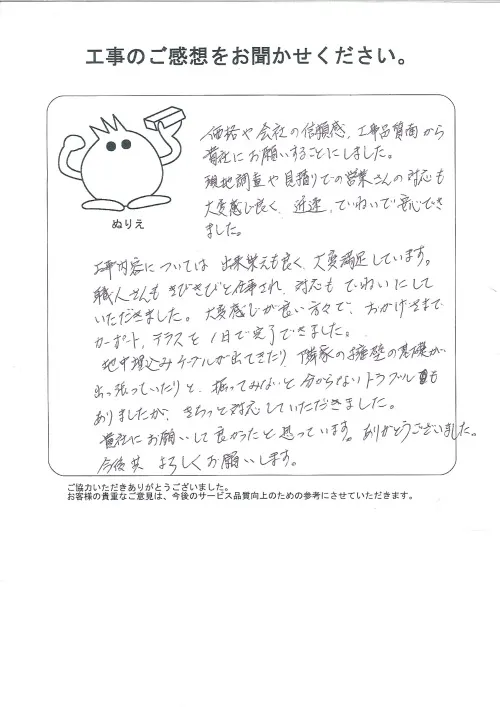 工事のご感想をお聞かせください。
価格や会社の信頼感、工事品質面から
貴社にお願いすることにしました。
現地調査や見積りでの営業さんの対応も
大変感じ良く、迅速、ていねいで安心でき
ました。
ぬりえ
工事内容については 出来栄えも良く、大変満足しています。
職人さんも きびきびと仕事され、対応も ていねいにして
いただきました。大変感じが良い方々で、おかげさまで
カーポート、テラスと 1日で完了できました。
地中埋込みケーブルが出てきたり、隣家の擁壁の基礎が
出っ張っていたりと、掘ってみないと分からないトラブルも
ありましたが、きちっと対応していただきました。
貴社にお願いして良かったと思っています。ありがとうございました。
今後共 よろしくお願いします。
ご協力いただきありがとうございました。
お客様の貴重なご意見は、今後のサービス品質向上のための参考にさせていただきます。